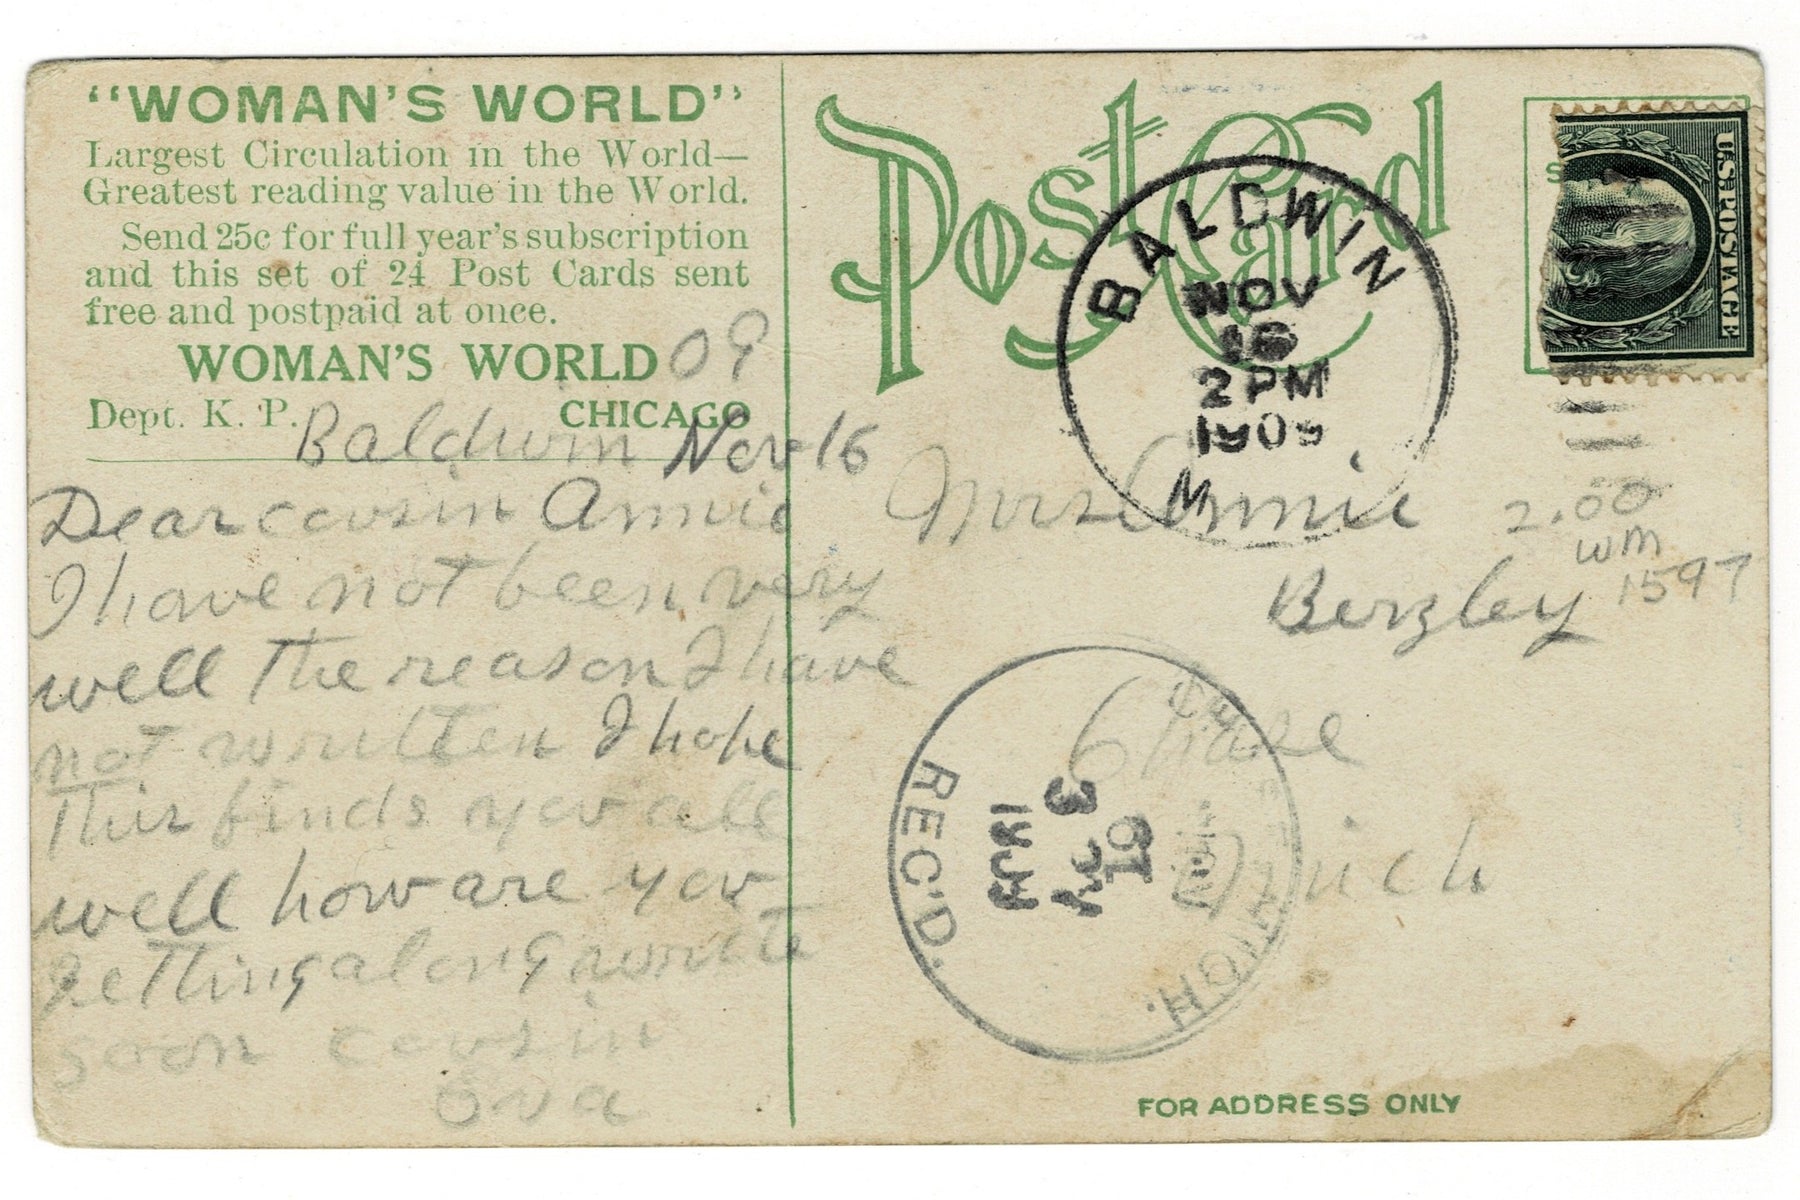 "WOMAN'S WORLD"
Largest Circulation in the World—
Greatest reading value in the World.
Send 25c for full year's subscription
and this set of 24 Post Cards sent
free and postpaid at once.
WOMAN'S WORLD 09
Dept. K. P. CHICAGO
Baldwin Nov 16
Dear cousin Annie
I have not been very
well the reason I have
not written I hope
this finds you all
well how are you
getting along write
soon cousin
Post Card
BALDWIN
NOV
16
2 PM
1909
M
U.S. POSTAGE
Mrs Annie
Berzley
2.00
WM
1597
Chase
Mich
REC'D.
MICH.
FOR ADDRESS ONLY